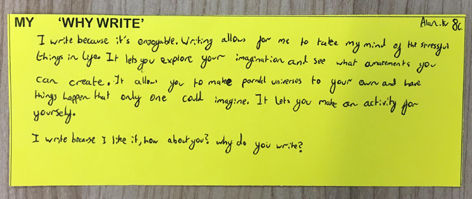 MY 'WHY WRITE' Alan.k 8c
I write because it's enjoyable. Writing allows for me to take my mind of the stressful
things in lyfe. It lets you explore your imagination and see what amazements you
can create. It allows you to make parallel universes to your own and have
things happen that only one could imagine. It lets you make an activity for
yourself.
I write because I like it, how about you? why do you write?